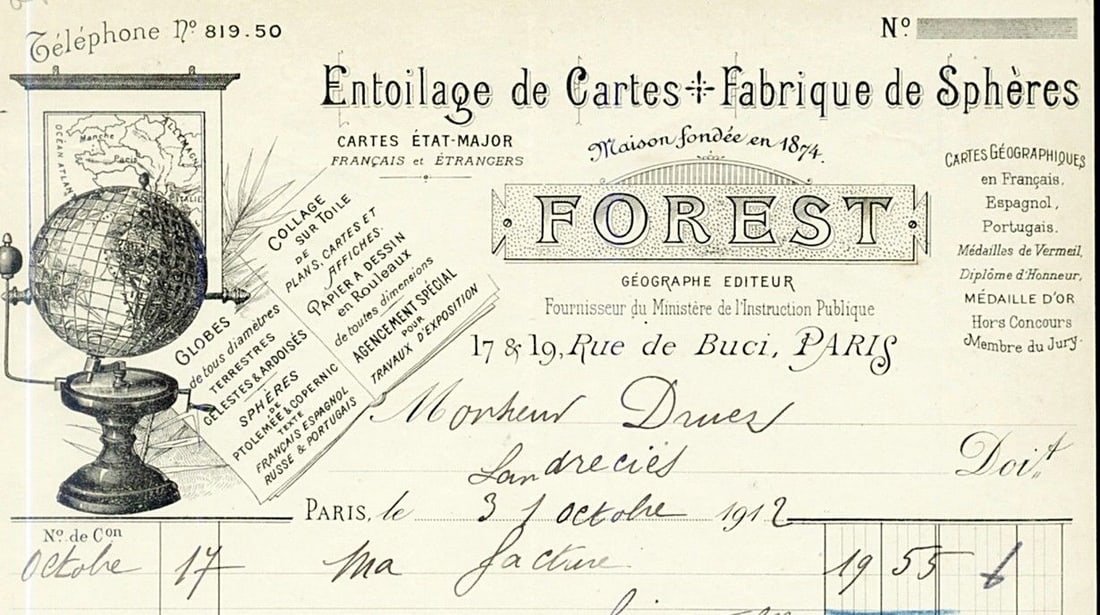 Téléphone Nº 819.50
Nº
Entoilage de Cartes Fabrique de Sphères
CARTES ÉTAT-MAJOR
FRANÇAIS et ÉTRANGERS
Maison fondée en 1874.
FOREST
GÉOGRAPHE EDITEUR
Fournisseur du Ministère de l'Instruction Publique
17 & 19, Rue de Buci, PARIS
CARTES GÉOGRAPHIQUES
en Français,
Espagnol,
Portugais.
Médailles de Vermeil,
Diplôme d'Honneur,
MÉDAILLE D'OR
Hors Concours
Membre du Jury.
OCÉAN ATLAN
Manche
Paris
ALLEMAGNE
ITALIE
COLLAGE
SUR TOILE
DE
PLANS, CARTES ET
AFFICHES.
PAPIER A DESSIN
en Rouleaux
de toutes dimensions
AGENCEMENT SPÉCIAL
POUR
TRAVAUX D'EXPOSITION
GLOBES
de tous diamètres
TERRESTRES
CÉLESTES & ARDOISÉS
SPHÈRES
DE
PTOLEMÉE & COPERNIC
TEXTE
FRANÇAIS ESPAGNOL
RUSSE & PORTUGAIS
Monsieur Druez
Landrecies
Doit
PARIS, le 31 octobre 1912
Nº. de Con
Octobre 17 Ma facture 19 55